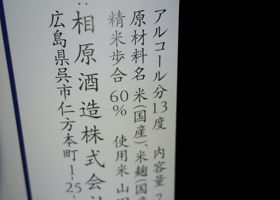 アルコール分13度 内容量7
原材料名 米(国産)、米麹(国産
精米歩合 60% 使用米 山田
:相原酒造株式会
広島県呉市仁方本町1-25-